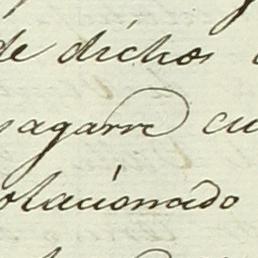 de dichos
agarre cu
olacionado